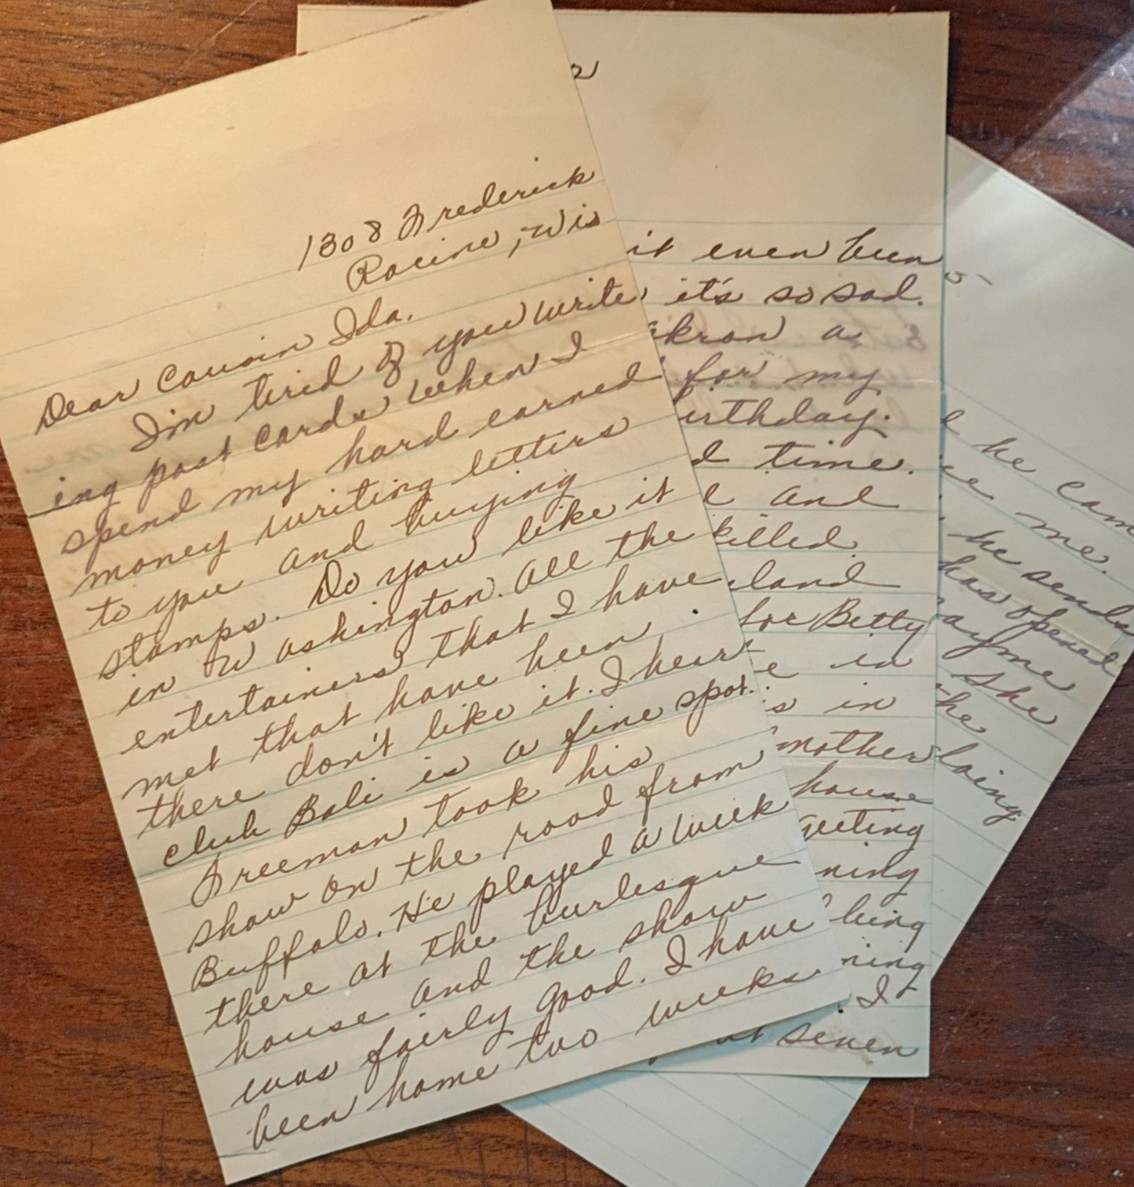 1308 Frederick
Racine, Wis
Dear Cousin Ida.
I'm tired of you write
ing post cards when I
spend my hard earned
money writing letters
to you and buying
stamps. Do you like it
in Washington. All the
entertainers that I have
met that have been
there don't like it. I hear
club Bali is a fine spot.
Freeman took his
show on the road from
Buffalo. He played a week
there at the burlesque
house and the show
was fairly good. I have
been home two weeks
2
it even been
it's so sad.
akron a
for my
birthday.
d time.
l and
killed
land
for Betty
e in
s in
mother
house
geting
ning
being
ning
I
at seven
5
he cam
me.
he sends
has opened
ayme
she
the
laing